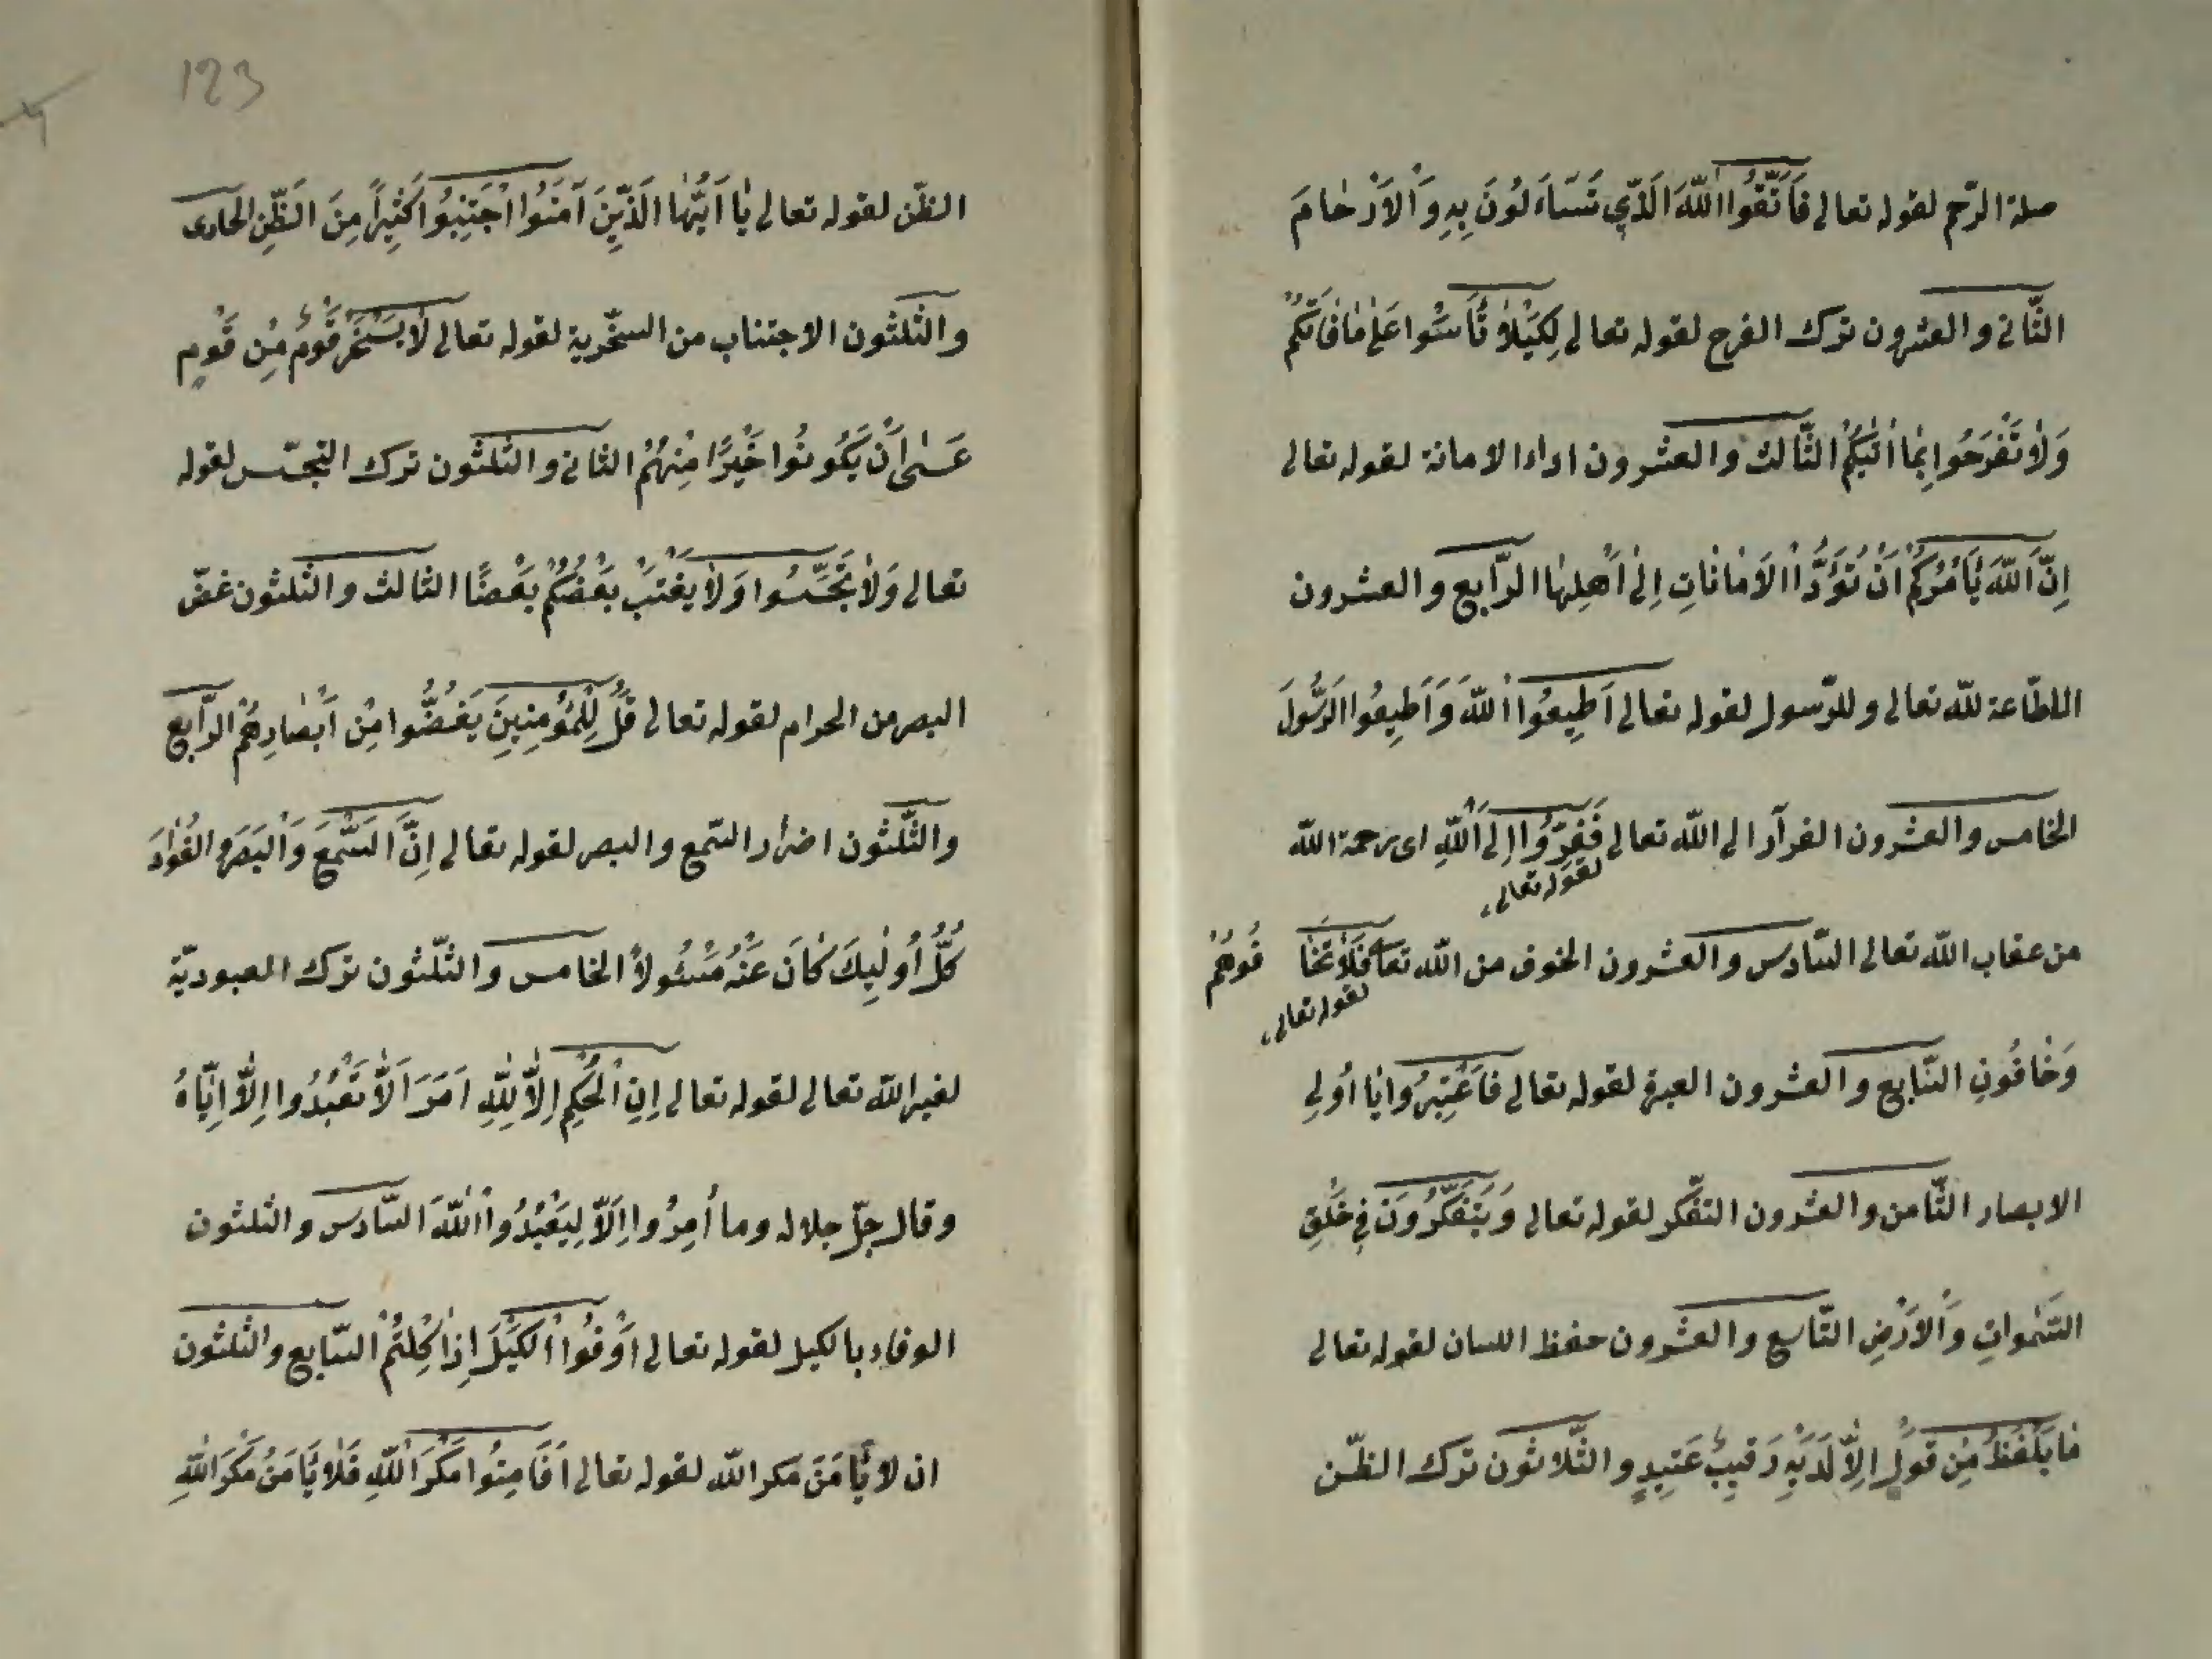 صلة الرّحم لقوله تعالى فَاَتَّقُوا اللّٰهَ الَّذٖي تَسَاءَلُونَ بِهِ وَاْلاَرْحٰامَ
الثّانى والعشرون ترك الفرح لقوله تعالى لِكَيْلاٰ تَأْسَوْا عَلىٰ مٰا فٰاتَكُمْ
وَلاٰ تَفْرَحُوا بِمٰا اٰتٰيكُمْ الثّالث والعشرون اداء الامانة لقوله تعالى
اِنَّ اللّٰهَ يَأْمُرُكُمْ اَنْ تُؤَدُّا اْلاَمٰانٰاتِ اِلىٰ اَهْلِهٰا الرّابع والعشرون
الاطّاعة للّه تعالى وللرّسول لقوله تعالى اَطٖيعُوا اللّٰهَ وَاَطٖيعُوا الرَّسُولَ
الخامس والعشرون الفرآر الى اللّه تعالى فَفِرُّوا اِلَى اللّٰهِ اى رحمة اللّه
لقوله تعالى
من عقاب اللّه تعالى السّادس والعشرون الخوف من اللّه تعا فَلاٰ تَخٰا فُوهُمْ
لقوله تعالى
وَخٰافُونِ السّابع والعشرون العبرة لقوله تعالى فَاعْتَبِرُوا يٰا اُولِى
الابصار الثّامن والعشرون التفّكر لقوله تعالى وَيَتَفَكَّرُونَ فٖى خَلْقِ
السَّمٰوٰاتِ وَاْلاَرْضِ التّاسع والعشرون حفظ اللسان لقوله تعالى
مٰا يَلْفَظُ مِنْ قَوْلٍ اِلاّٰ لَدَيْهِ رَقٖيبٌ عَتٖيدٍ والثّلاثون ترك الظّن
123
الظّن لقوله تعالى يٰا اَيُّهٰا الَّذٖينَ اٰمَنُوا اجْتَنِبُوا كَثٖيرًا مِنَ الظَّنِّ الحادى
والثّلثون الاجتناب من السخّرية لقوله تعالى لاٰ يَسْخَرْ قَوْمٌ مِنْ قَوْمٍ
عَسٰى اَنْ يَكُونُوا خَيْرًا مِنْهُمْ الثانى والثّلثون ترك التجسّس لقوله
تعالى وَلاٰ تَجَسَّسُوا وَلاٰ يَغْتَبْ بَعْضُكُمْ بَعْضًا الثالث والثّلثون غضّ
البصر من الحرام لقوله تعالى قُلْ لِلْمُؤْمِنٖينَ يَغُضُّوا مِنْ اَبْصٰارِهُمْ الرّابع
والثّلثون اضرار السّمع والبصر لقوله تعالى اِنَّ السَّمْعَ وَالْبَصَرَ والْفُوٰادَ
كُلُّ اُولٰئِكَ كٰانَ عَنْهُ مَسْئُولاً الخامس والثّلثون ترك العبوديّة
لغير اللّه تعالى لقوله تعالى اِنِ الْحُكْمِ اِلاّٰ لِلّٰهِ اَمَرَ اَلاّٰ تَعْبُدُوا اِلاّٰ اِيّٰاهُ
وقال جلّ جلاله وما اُمِرُوا اِلاّٰ لِيَعْبُدُوا اللّٰهَ السّادس والثلثون
الوفاء بالكيل لقوله تعالى اَوْفُوا الْكَيْلَ اِذٰا كِلْتُمْ السّابع والثّلثون
ان لا يَأْمَنَ مكر اللّه لقوله تعالى اَفَاَمِنُوا مَكْرَ اللّٰهِ فَلاٰ يَأْمَنُ مَكْرَ اللّٰهِ